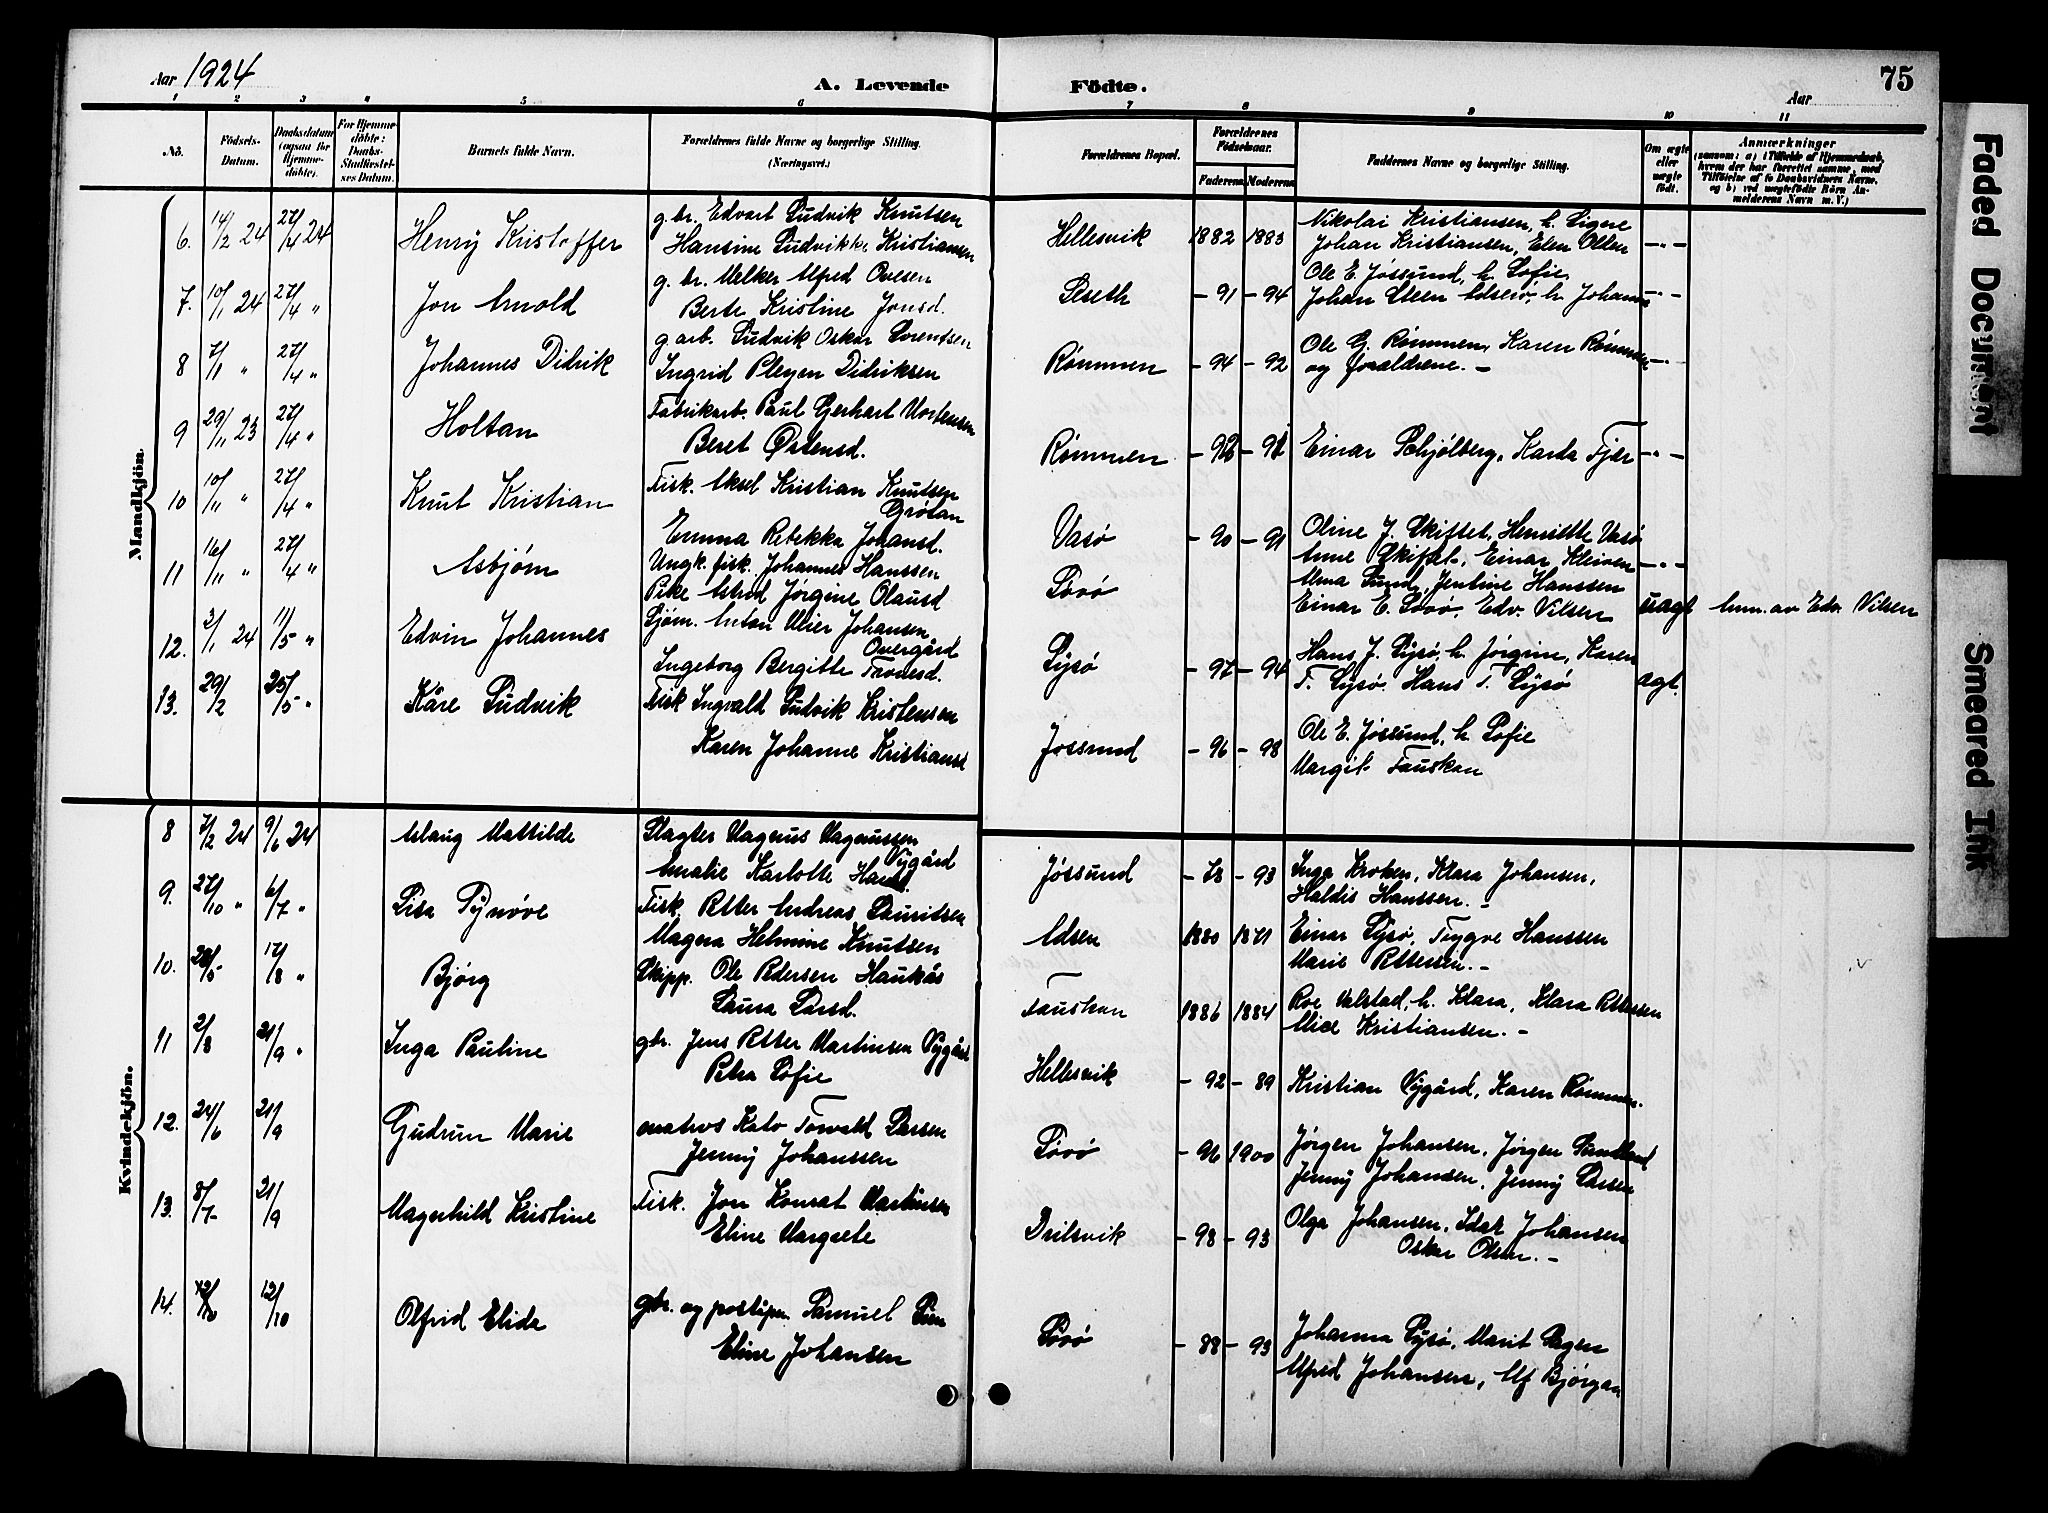 Aar 1924
A. Levende Födte.
Aar
75
1 2 3 4 5 6 7 8 9 10 11
No.
Födsels-Datum.
Daabsdatum (ogsaa for Hjemme-döbte).
For Hjemme-döbte: Daabs-Stadfæstel-ses Datum.
Barnets fulde Navn.
Forældrenes fulde Navne og borgerlige Stilling. (Næringsvei.)
Forældrenes Bopæl.
Forældrenes Födselsaar.
Faderens Moderens
Faddernes Navne og borgerlige Stilling.
Om ægte eller uægte födt.
Anmærkninger
(saasom: a) i Tilfælde af Hjemmedaab, hvem der har forrettet samme, med Tilföielse af to Daabsvidners Navne, og b) ved uægtefödte Börn An-melderens Navn m. V.)
Mandkjön.
6. 14/2 24 27/4 24 Henry Kristoffer
g.br. Edvart Ludvik Knutsen
Hansine Ludvikke Kristiansen
Hellesvik 1882 1883
Nikolai Kristiansen, h. Signe
Johan Kristiansen, Elen Olsen -"-
7. 10/1 24 27/4 " Jon Arnold
g. br. Melker Alfred Ovesen
Berte Kristine Jonsd.
Seseth - 91 - 94
Ole E. Jøssund, h. Sofie
Johan Steen h. Johanne -"-
8 7/1 " 27/4 " Johannes Didrik
g.arb. Ludvik Oskar Lorentsen
Ingrid Pleym Didriksen
Rømmen - 94 - 92
Ole G. Rømmen, Karen Rømmen
og foraldrene. - -"-
9 29/11 23 27/4 " Holtan
Fabrikarb. Paul Gerhart Mortensen
Beret Østensd.
Rømmen
Einar Schjølberg, Karda Fjær -"-
10 10/11 " 27/4 " Knut Kristian
Fisk. Aksel Kristian Knutsen
Grøtan
Emma Rebekka Johansd.
Vasø - 90 - 91
Oline J. Skiftet, Henriette Vasø
Anne Skiftet, Einar Kleiven -"-
11 16/11 " 27/4 " Asbjørn
Ungk. fisk. Johannes Hanssen
Pike Astrid Jørgine Olausd
Søvø
Alma Sund, Jentine Hanssen
Einar E. Søvø, Edv. Nilsen uagt anm. av Edv. Nilsen
12. 2/1 24 11/5 " Edvin Johannes
Sjøm. Anton Meier Johansen
Overgård
Ingeborg Bergitte Tronesd.
Sysø - 97 - 94
Hans J. Sysø, h. Jørgine, Karen
T. Sysø. Hans T. Sysø agt.
13. 29/2 25/5 " Kåre Ludvik
Fisk Ingvald Ludvik Kristensen
Karen Johanne Kristiansd
Jossund - 96 - 98
Ole E. Jøssund, h. Sofie
Margit Fauskan
Kvindekjön.
8 7/2 24 9/6 24 Aslaug Mattilde
Slagter Magnus Magnussen
Nygård
Amalie Karlotte Hansd
Jøssund - 78 - 93
Inga Kroken, Klara Johansen,
Haldis Hanssen. -
9. 27/10 " 6/7 " Lisa Synøve
Fisk. Petter Andreas Lauritsen
Magna Helmine Knutsen
Adsen 1880 1871
Einar Sysø, Trygve Hanssen
Marie Pettersen. -
10. 28/5 17/8 " Bjørg
Skipp. Ole Pedersen Haukås
Laura Larsd.
Fauskan 1886 1884
Roe Valstad, h. Klara, Klara Pettersen
Alice Kristiansen. -
11 2/8 21/9 " Inga Pauline
gbr. Jens Petter Martinsen Nygård
Petra Sofie
Hellesvik - 92 - 89
Kristian Nygård, Karen Rømmen.
12. 24/6 21/9 Gudrun Marie
matros Kato Torvald Larsen
Jenny Johanssen
Søvø - 96 1900
Jørgen Johansen, Jørgen Sandland
Jenny Johansen, Jenny Larsen
13. 8/7 21/9 Magnhild Kristine
Fisk. Jon Konrat Martinsen
Eline Margrete
Drilsvik - 98 - 93
Olga Johansen, Johansen
Oskar Olsen. -
14. 12/10 Olfrid Elida
gbr. og postpn. Samuel
Eline Johansen
Søvø - 88 - 93
Johanna Sysø, Marit Hagen
Alfred Johansen, Alf Bjørgan
Faded Document
Smeared Ink